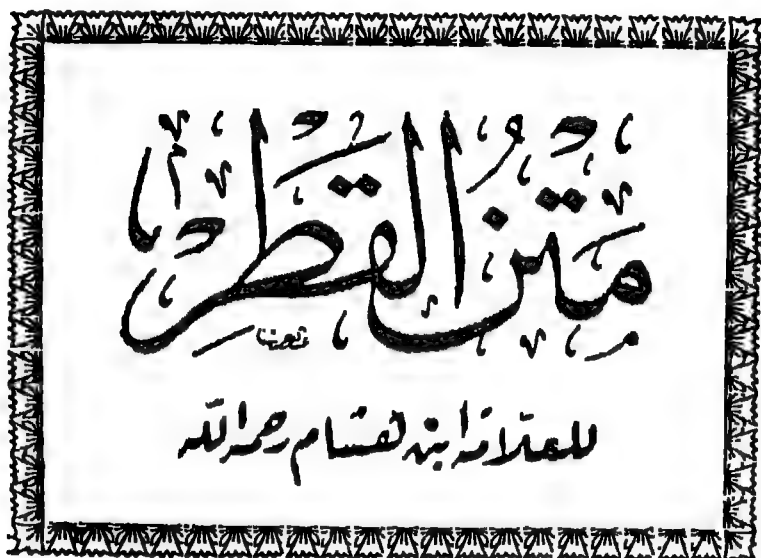 متن القطر
للعلامه ابن هشام رحمه الله